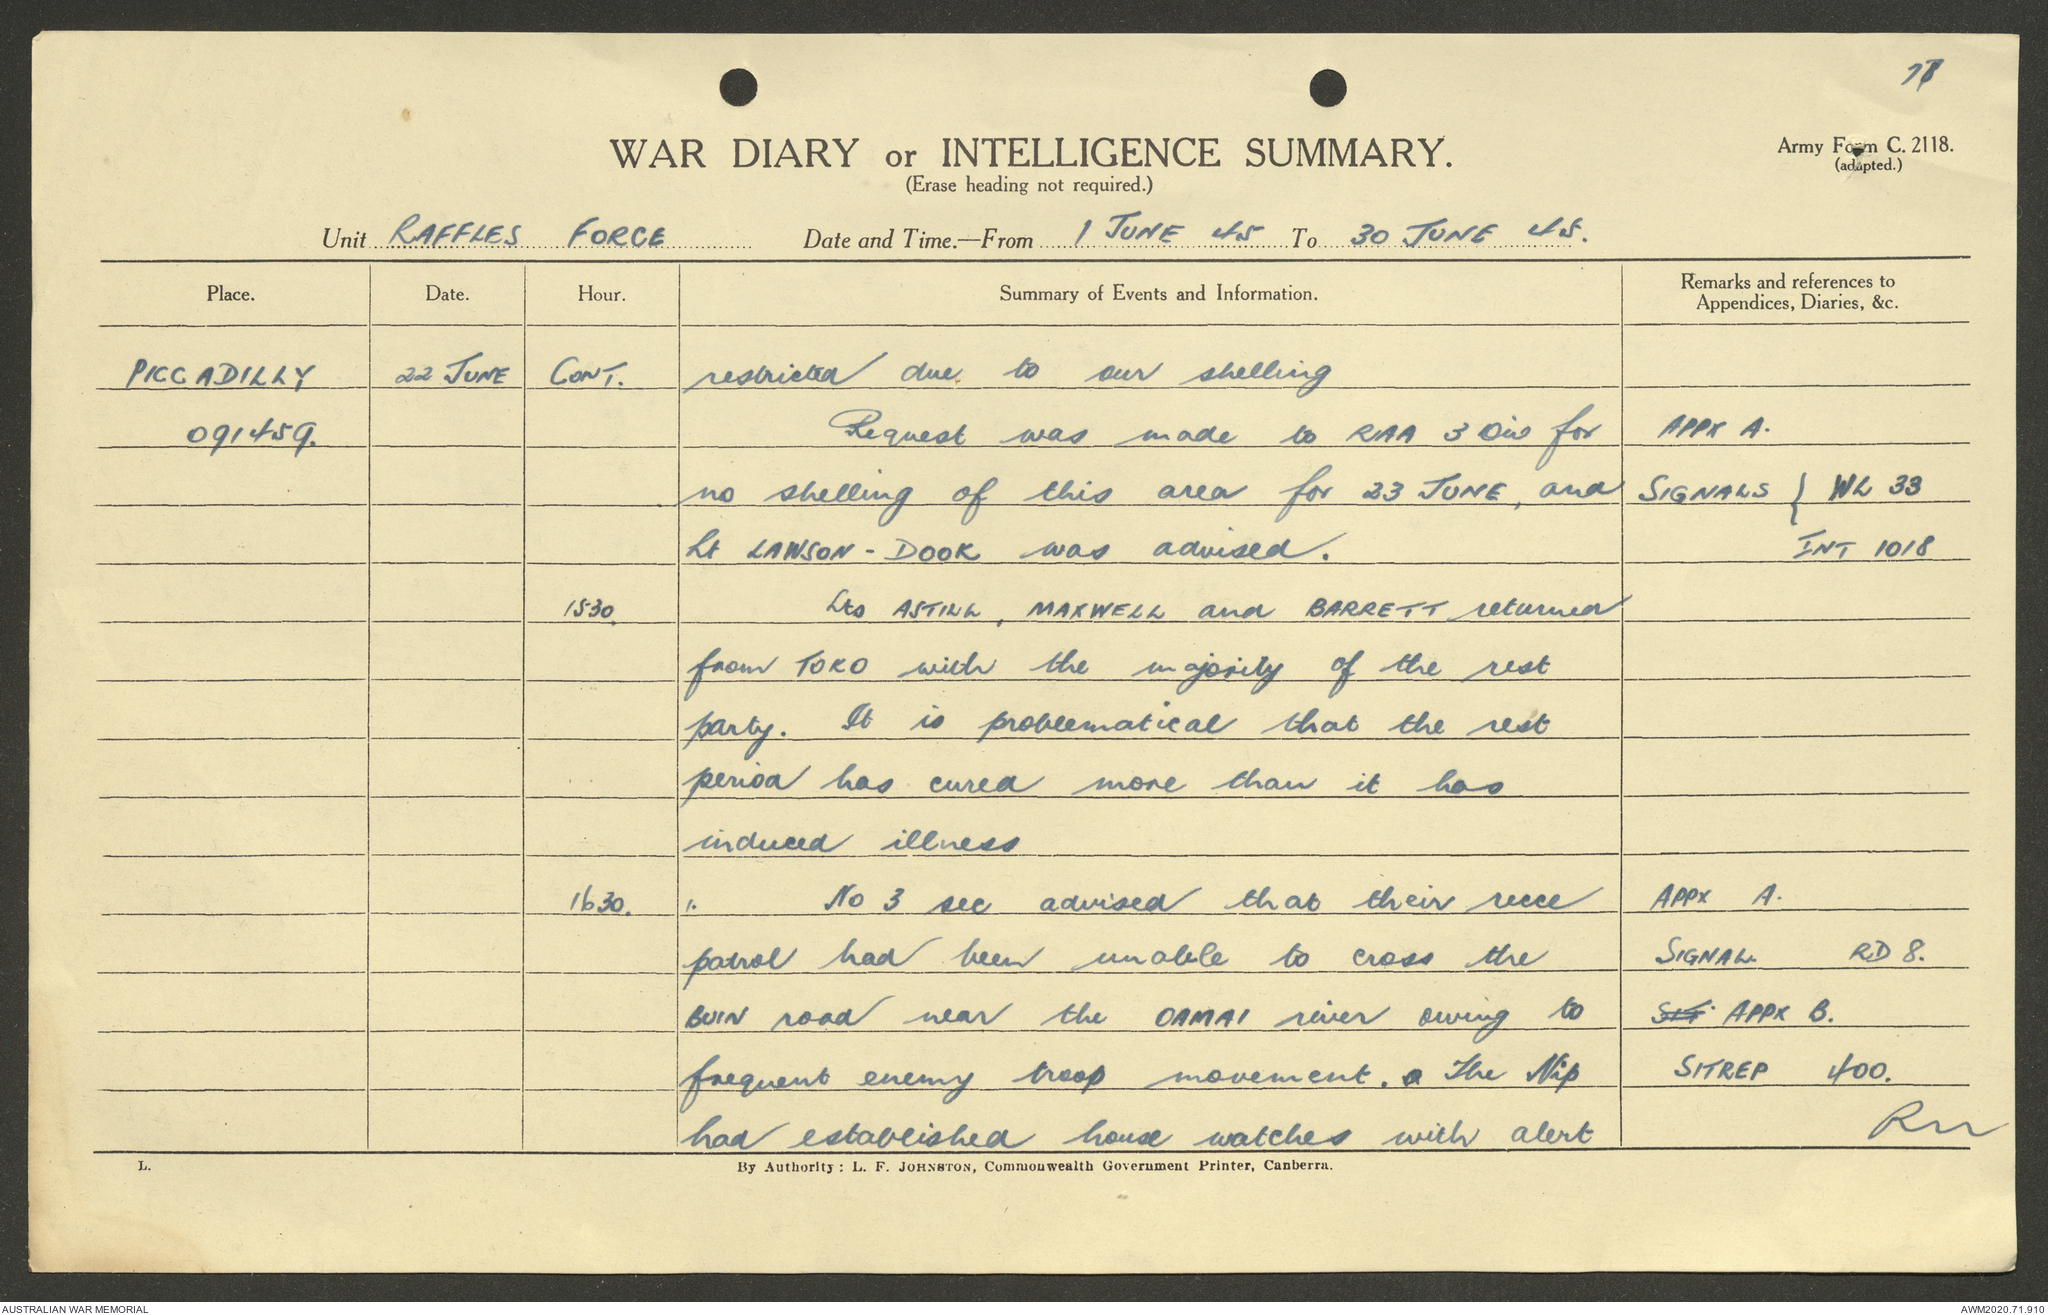 WAR DIARY or INTELLIGENCE SUMMARY.
(Erase heading not required.)
Army Form C. 2118.
(adapted.)
Unit RAFFLES FORCE Date and Time.—From 1 JUNE 45 To 30 JUNE 45.
Place. Date. Hour. Summary of Events and Information. Remarks and references to
Appendices, Diaries, &c.
PICCADILLY 22 JUNE CONT. restricted due to our shelling
091459. Request was made to RAA 3 Div for APPX A.
no shelling of this area for 23 JUNE, and SIGNALS } WL 33
Lt LAWSON-DOOK was advised. INT 1018
1530. Lts ASTILL, MAXWELL and BARRETT returned
from TOKO with the majority of the rest
party. It is problematical that the rest
period has cured more than it has
induced illness
1630. No 3 sec advised that their recce APPX A.
patrol had been unable to cross the SIGNAL RD 8.
BUIN road near the OAMAI river owing to SIT APPX B.
frequent enemy troop movement. The Nip SITREP 400.
had established house watches with alert
L. By Authority: L. F. JOHNSTON, Commonwealth Government Printer, Canberra.
AUSTRALIAN WAR MEMORIAL AWM2020.71.910